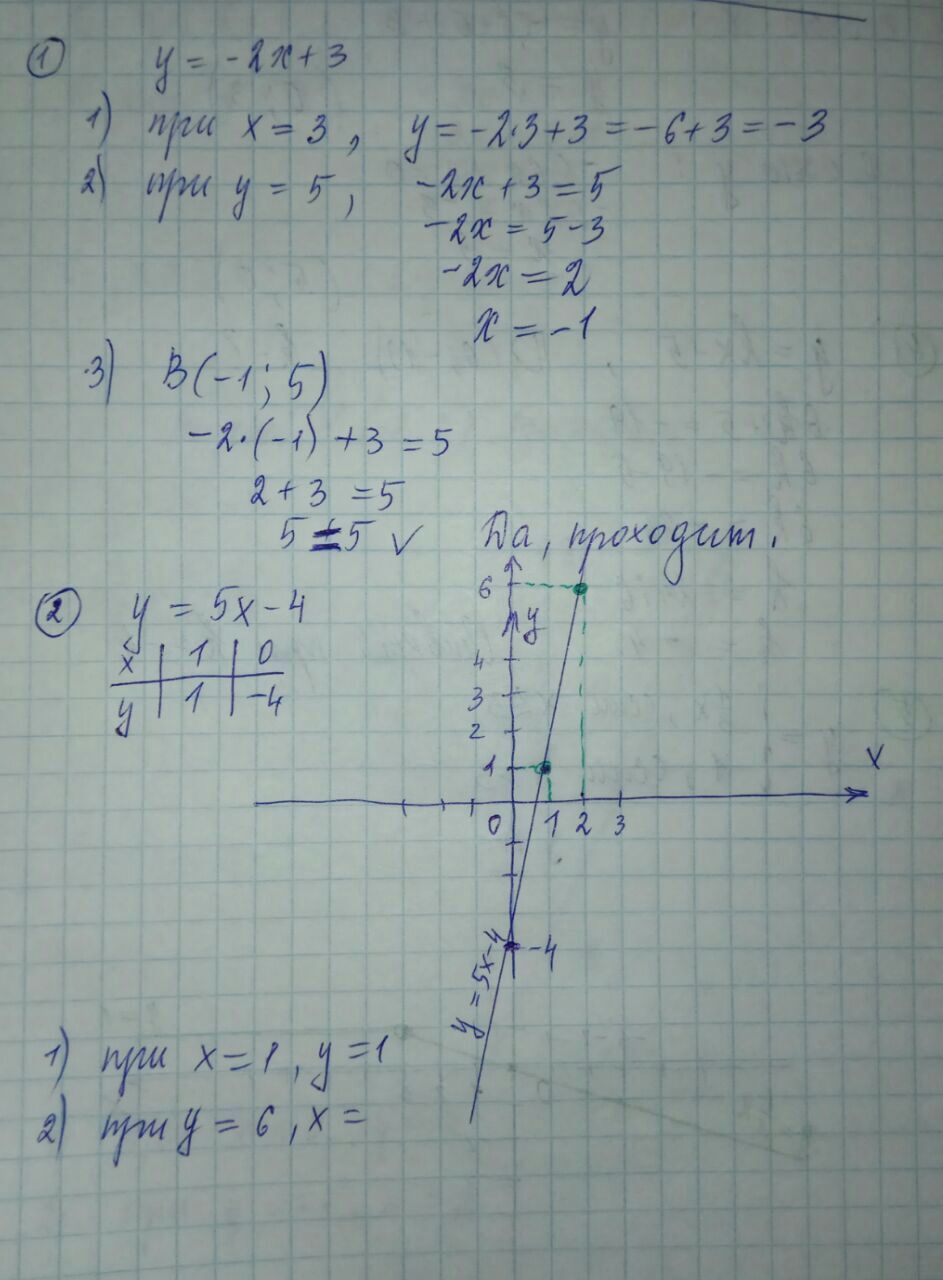 ① y = -2x + 3
1) при x = 3, y = -2·3 + 3 = -6 + 3 = -3
2) при y = 5, -2x + 3 = 5
-2x = 5 - 3
-2x = 2
x = -1
3) B(-1; 5)
-2·(-1) + 3 = 5
2 + 3 = 5
5 = 5 ✓ Да, проходит.
② y = 5x - 4
x | 1 | 0
y | 1 | -4
6
y
4
3
2
1
x
0 1 2 3
-4
y = 5x-4
1) при x = 1, y = 1
2) при y = 6, x =